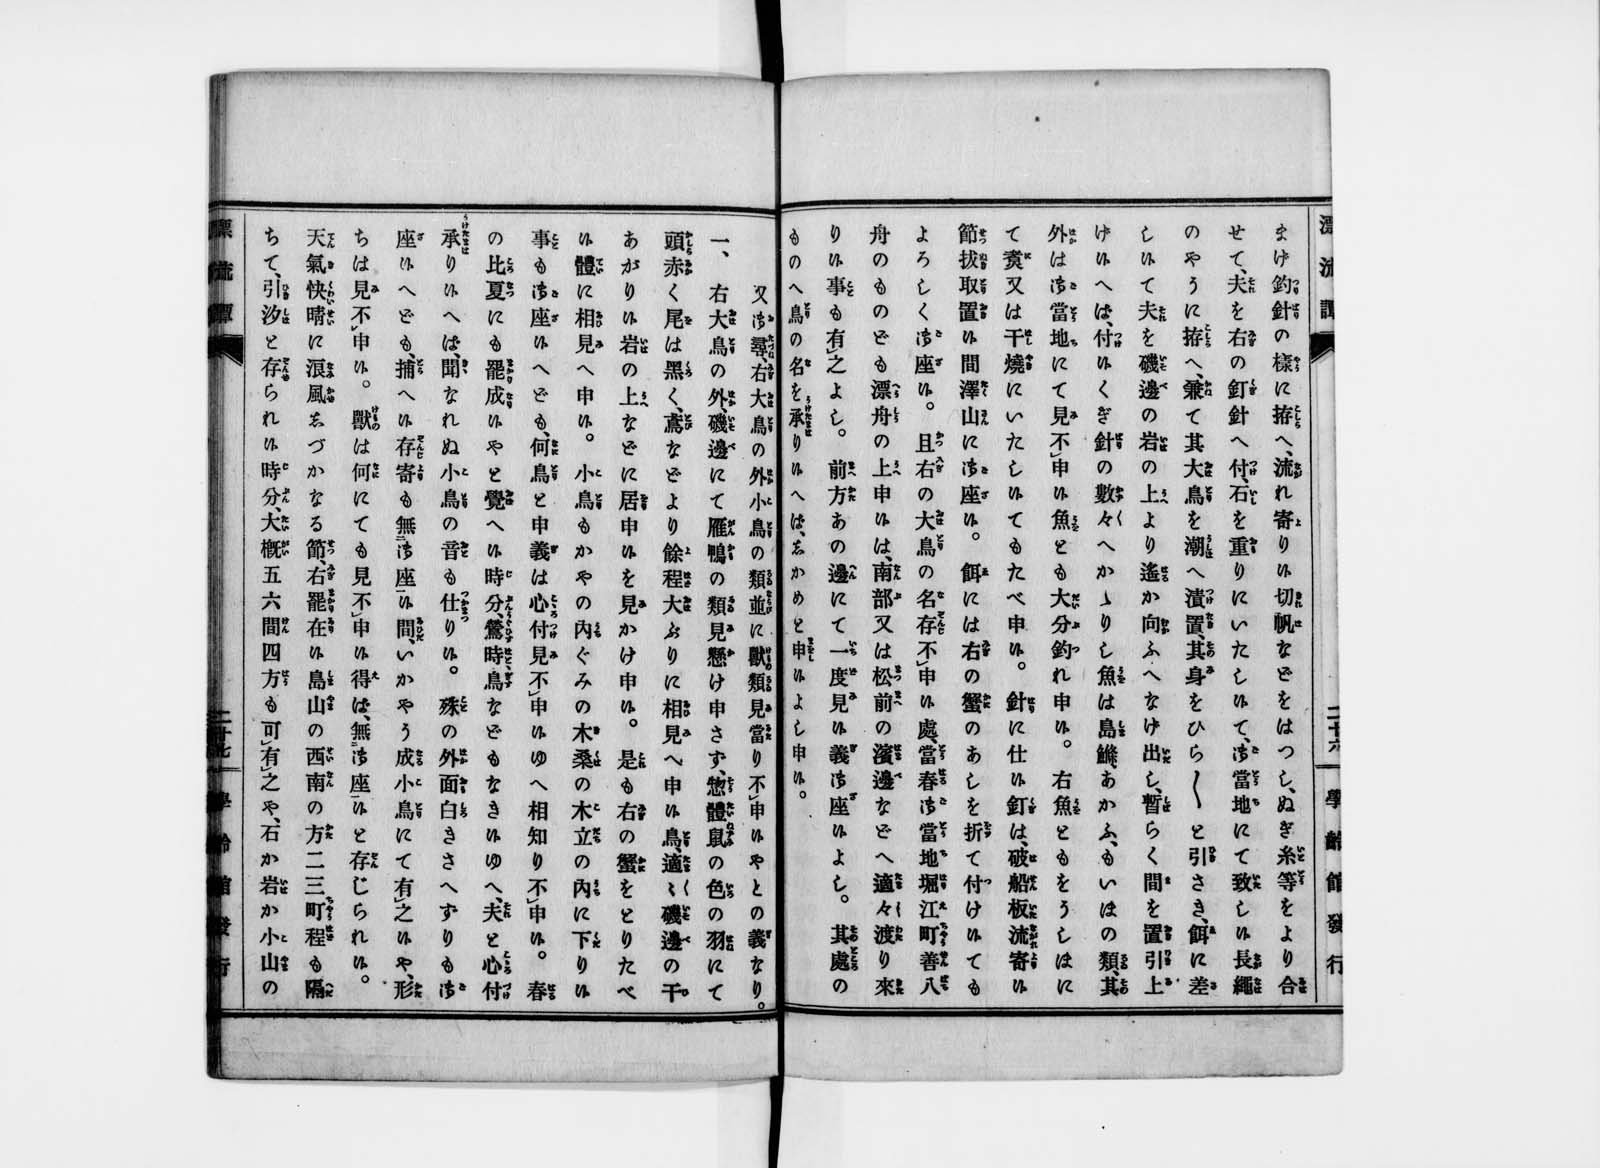 漂流譚
二十六
學齡館發行
まげ釣針の樣に拵へ、流れ寄りい切帆などをはつし、ぬぎ糸等をより合
せて、夫を右の釘針へ付、石を重りにいたしいて、御當地にて致しい長繩
のやうに拵へ、兼て其大鳥を潮へ漬置、其身をひら〳〵と引さき、餌に差
しいて夫を磯邊の岩の上より遙か向ふへなげ出し、暫らく間を置引上
げいへば、付いくぎ針の數々へかゝりし魚は島鰺、あかふ、もいはの類、其
外は御當地にて見不申い魚とも大分釣れ申い。右魚ともをうしほに
て煑又は干燒にいたしいてもたべ申い。針に仕い釘は、破船板流寄い
節拔取置い間澤山に御座い。餌には右の蟹のあしを折て付けいても
よろしく御座い。且右の大鳥の名存不申い處、當春御當地堀江町善八
舟のものども漂舟の上申いは、南部又は松前の濱邊などへ適々渡り來
りい事も有之よし。前方あの邊にて一度見い義御座いよし。其處の
ものへ鳥の名を承りいへば、あかめと申いよし申い。
又御尋、右大鳥の外小鳥の類並に獸類見當り不申いやとの義なり。
一、右大鳥の外、磯邊にて雁鴨の類見懸け申さず、惣體鼠の色の羽にて
頭赤く尾は黑く、鳶などより餘程大ぶりに相見へ申い鳥、適〻磯邊の干
あがりい岩の上などに居申いを見かけ申い。是も右の蟹をとりたべ
い體に相見へ申い。小鳥もかやの內ぐみの木桑の木立の內に下りい
事も御座いへども、何鳥と申義は心付見不申いゆへ相知り不申い。春
の比夏にも罷成いやと覺へい時分、鶯時鳥などもなきいゆへ、夫と心付
承りいへば、聞なれぬ小鳥の音も仕りい。殊の外面白きさへずりも御
座いへども、捕へい存寄も無御座い間、いかやう成小鳥にて有之いや、形
ちは見不申い。獸は何にても見不申い得ば、無御座いと存じられい。
天氣快晴に浪風あづかなる節、右罷在い島山の西南の方二三町程も隔
ちて、引汐と存られい時分、大槪五六間四方も可有之や、石か岩か小山の
漂流譚
二十七
學齡館發行